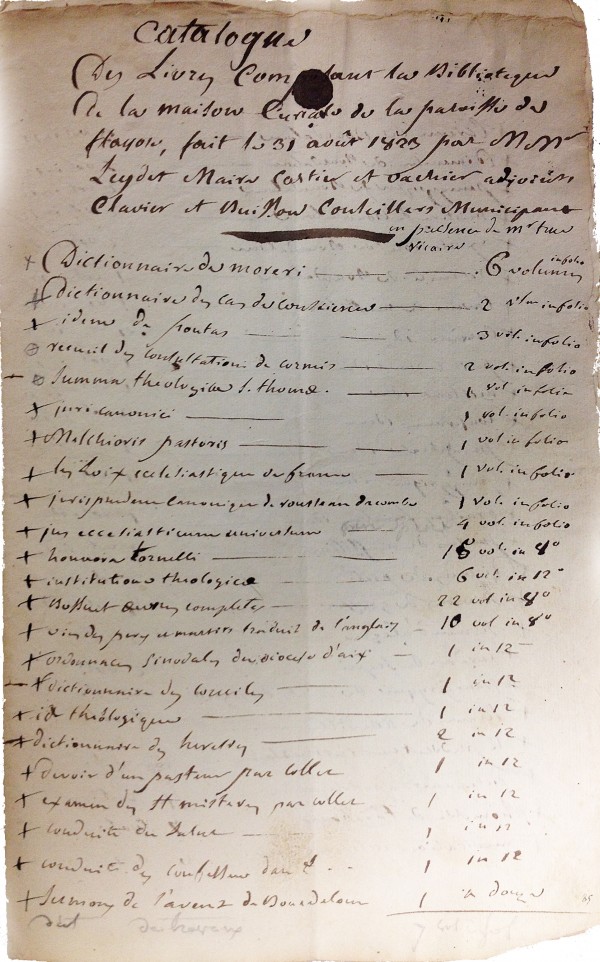 Catalogue
Des Livres Composant la Biblioteque
de la maison Curiale de la paroisse de
fait le 31 août 1823 par Mrs
Leydet Maire Castier et vachier adjoints
Clavier et Buisson Conseillers Municipaux
en presence de mr true
vicaire
+ Dictionnaire de moreri — 6 volumes in folio
+ Dictionnaire des cas de conscience — 2 in folio
+ idem de pontas — 3 vol. in folio
recueil des consultations de cormis — 2 vol. in folio
Summa theologica S. thomæ. — 1 vol in folio
+ juris canonici — 1 vol. in folio
+ Melchioris pastoris — 1 vol in folio
+ les Loix ecclesiastique de france — 1 vol. in folio
+ jurisprudence canonique de rousseau dacombe 1 vol. in folio
+ jus ecclesiasticum universum 4 vol. in folio
+ honnora tornelli — 15 vol. in 8°
+ institutiones theologicæ 6 vol. in 12°
+ Bossuet œuvres completes — 22 vol in 8°
+ vies des peres et martirs traduit de l'anglais — 10 vol in 8°
+ ordonnaces sinodales du diocese d'aix — 1 in 12
+ dictionnaire des conciles — 1 in 12
+ id theologique — 1 in 12
+ dictionnaire des heresies — 2 in 12
+ devoir d'un pasteur par collet 1 in 12
+ examen des St misteres par collet 1 in 12
+ conduite du salut — 1 in 12
+ conduite des confesseurs 1 in 12
+ Sermons de l'avent de Bourdaloue 1 in douze